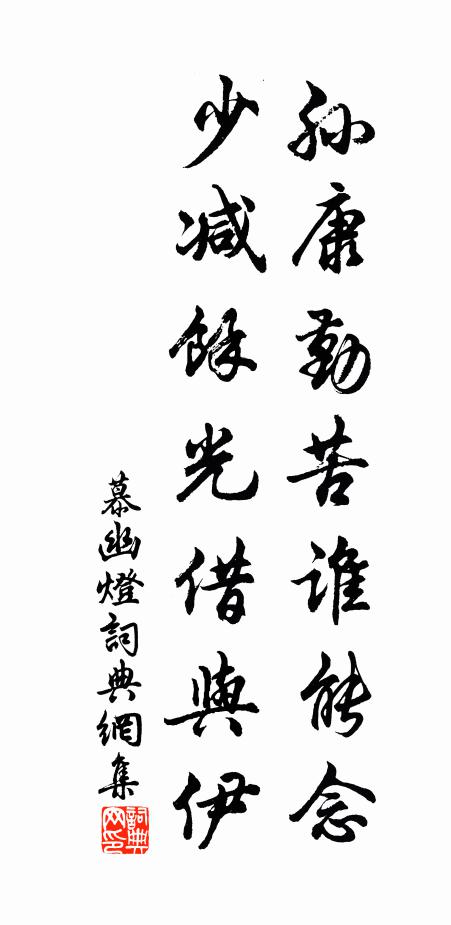 孙康勤苦谁能念
少减馀光借與伊
慕幽燈詞典網集
詞典网印